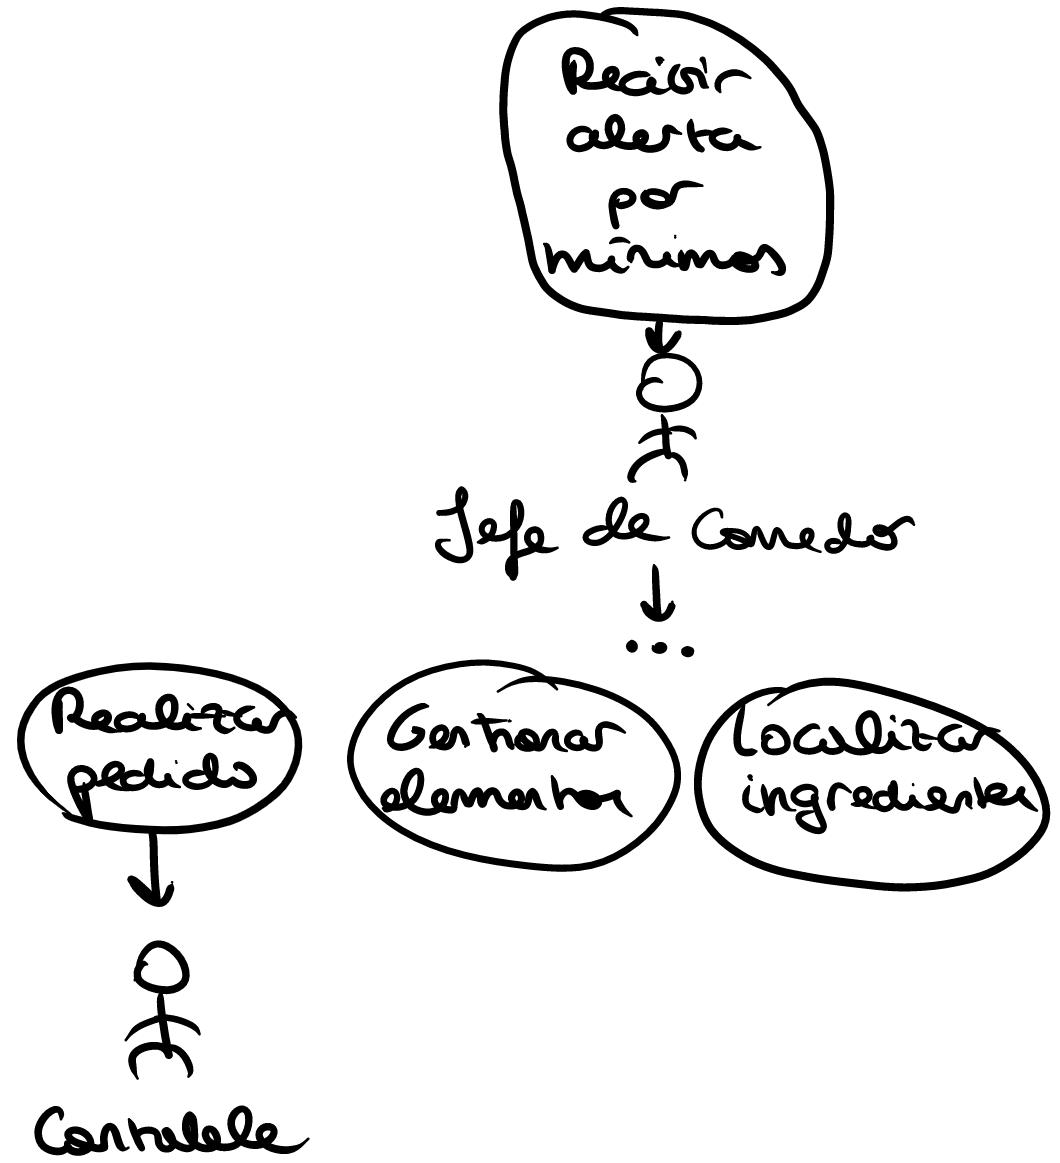 Recibir
alerta
por
mínimos
Jefe de Comedor
...
Realizar
pedido
Gestionar
elementos
Localizar
ingredientes
Contable